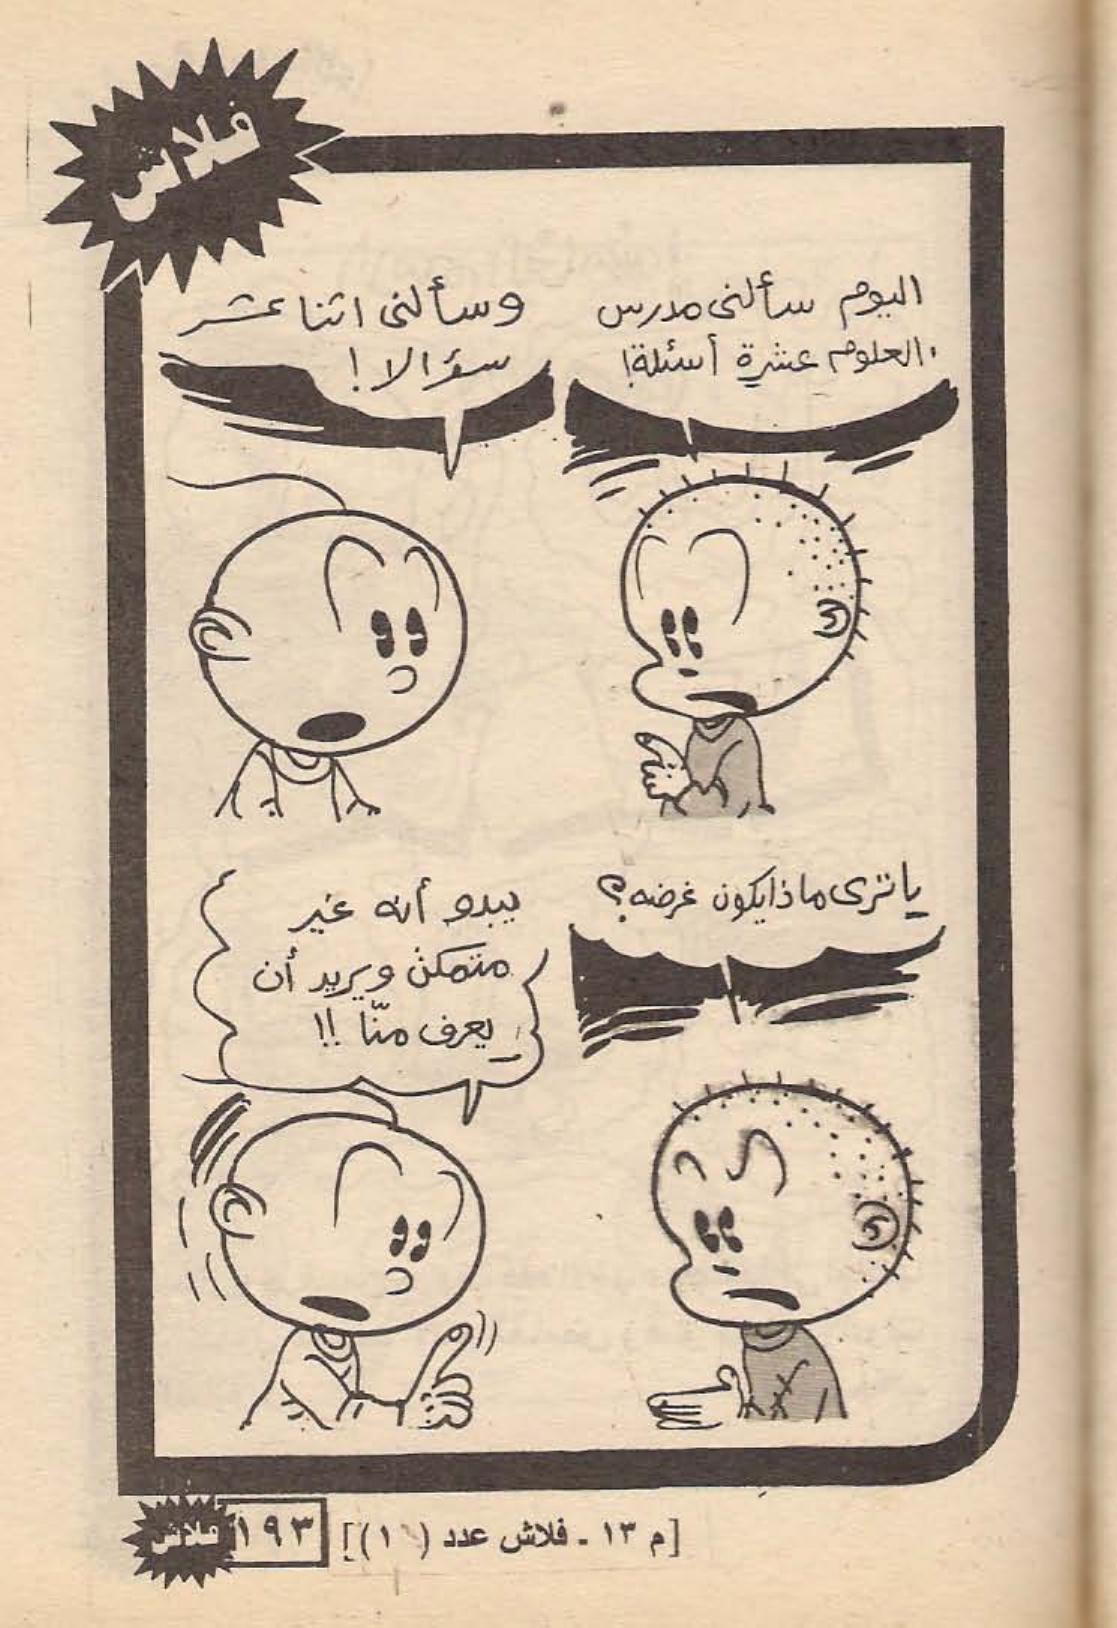 فلاش
اليوم سألنى مدرس
العلوم عشرة أسئلة!
وسألنى اثنا عشر
سؤالا!
يا ترى ماذا يكون غرضه؟
يبدو أنه غير
متمكن ويريد أن
يعرف منّا !!
[م ١٣ ـ فلاش عدد (١)]
١٩٣
فلاش